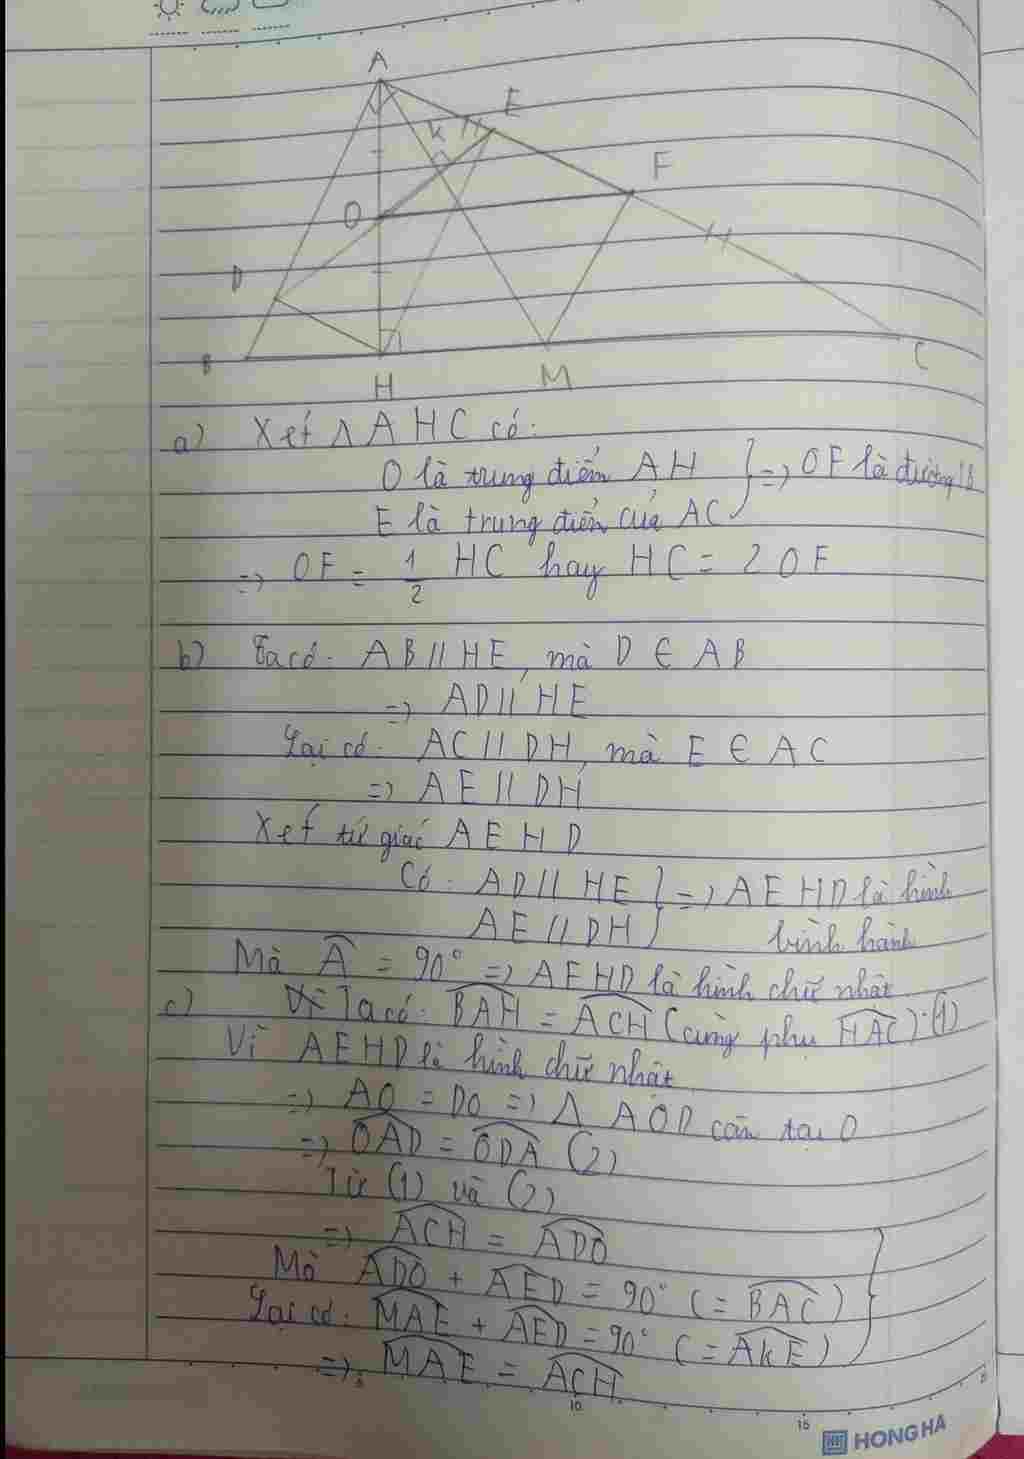 A
E
K
F
O
D
B
H
M
C
a) Xét △ AHC có:
O là trung điểm AH } => OF là đường TB
E là trung điểm của AC
=> OF = 1/2 HC hay HC = 2 OF
b) Ta có: AB // HE, mà D ∈ AB
=> AD // HE
Lại có: AC // DH, mà E ∈ AC
=> AE // DH
Xét tứ giác AEHD
Có: AD // HE } => AEHD là hình
AE // DH bình hành
Mà Â = 90° => AEHD là hình chữ nhật
c) Vì Ta có: BAH = ACH (cùng phụ HAC). (1)
Vì AEHD là hình chữ nhật
=> AO = DO => △ AOD cân tại O
=> OAD = ODA (2)
Từ (1) và (2)
=> ACH = ADO
Mà ADO + AED = 90° (= BAC)
Lại có: MAE + AED = 90° (= AKE)
=> MAE = ACH
10
15
HONG HA